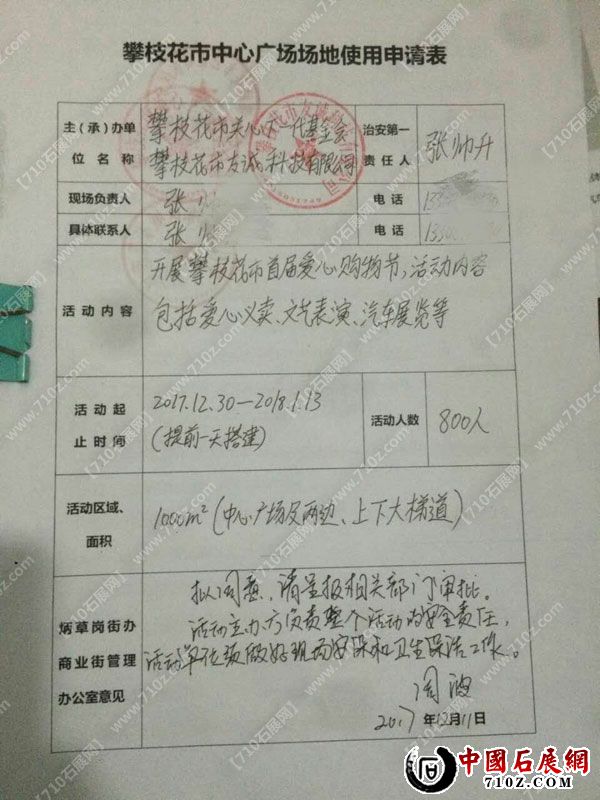 攀枝花市中心广场场地使用申请表
主(承)办单位名称
攀枝花市关心下一代基金会
攀枝花市友诚科技有限公司
治安第一责任人
张帅升
现场负责人
张
电话
133
具体联系人
张
电话
1330
活动内容
开展攀枝花市首届爱心购物节,活动内容
包括爱心义卖、文艺表演、汽车展览等
活动起
止时师
2017.12.30—2018.1.13
(提前一天搭建)
活动人数
800人
活动区域、
面积
1000m²(中心广场及两边、上下大梯道)
炳草岗街办
商业街管理
办公室意见
拟同意,请呈报相关部门审批。
活动主办方负责整个活动的安全责任,
活动单位须做好现场安保和卫生保洁工作。
周波
2017年12月11日
【710石展网】www.710z.com
中國石展網
www.710z.com